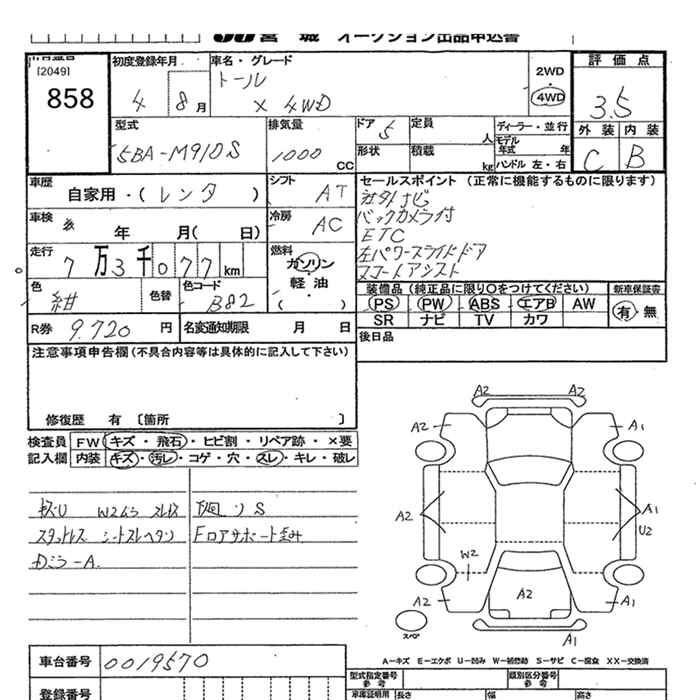 宮 城 オークション出品申込書
[2049]
858
初度登録年月
4 8月
車名・グレード
トール
X 4WD
2WD
4WD
評価点
3.5
外装 内装
C B
型式
5BA-M910S
排気量
1000 CC
ドア 5
定員 人
形状
積載 kg
ディーラー・並行
モデル年式 年
ハンドル 左・右
車歴
自家用・(レンタ)
シフト
AT
車検
年 月( 日)
冷房
AC
走行
7万3千077km
燃料
ガソリン
・
軽油
( )
色
紺
色替
色コード
B82
R券 9.720 円
名変通知期限 月 日
セールスポイント (正常に機能するものに限ります)
社外ナビ
バックカメラ付
ETC
左パワースライドドア
スマートアシスト
装備品(純正品に限り〇をつけてください)
新車保証書
PS PW ABS エアB AW
有・無
SR ナビ TV カワ
後日品
注意事項申告欄(不具合内容等は具体的に記入して下さい)
修復歴 有 〔箇所 〕
検査員記入欄
FW キズ・飛石・ヒビ割・リペア跡・×要
内装 キズ・汚レ・コゲ・穴・スレ・キレ・破レ
下廻り S
シートスレヘタリ
Fロアサポート歪み
Dミラ-A
A2 A2
A2 A1
A2 A1
U2
W2
A2 A2 A1
スペア
A1
A-キズ E-エクボ U-凹み W-補修跡 S-サビ C-腐食 XX-交換済
車台番号 0019570
登録番号
型式指定番号
参考
類別区分番号
参考
車庫証明用 長さ 幅 高さ